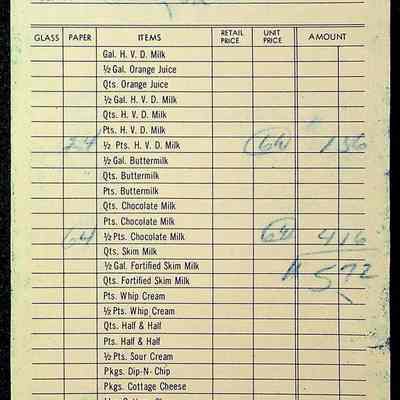 GLASS PAPER ITEMS RETAIL PRICE UNIT PRICE AMOUNT
Gal. H. V. D. Milk
½ Gal. Orange Juice
Qts. Orange Juice
½ Gal. H. V. D. Milk
Qts. H. V. D. Milk
Pts. H. V. D. Milk
24 ½ Pts. H. V. D. Milk 6½ 1 56
½ Gal. Buttermilk
Qts. Buttermilk
Pts. Buttermilk
Qts. Chocolate Milk
Pts. Chocolate Milk
64 ½ Pts. Chocolate Milk 6½ 4 16
Qts. Skim Milk
½ Gal. Fortified Skim Milk 5 72
Qts. Fortified Skim Milk
Pts. Whip Cream
½ Pts. Whip Cream
Qts. Half & Half
Pts. Half & Half
½ Pts. Sour Cream
Pkgs. Dip-N-Chip
Pkgs. Cottage Cheese